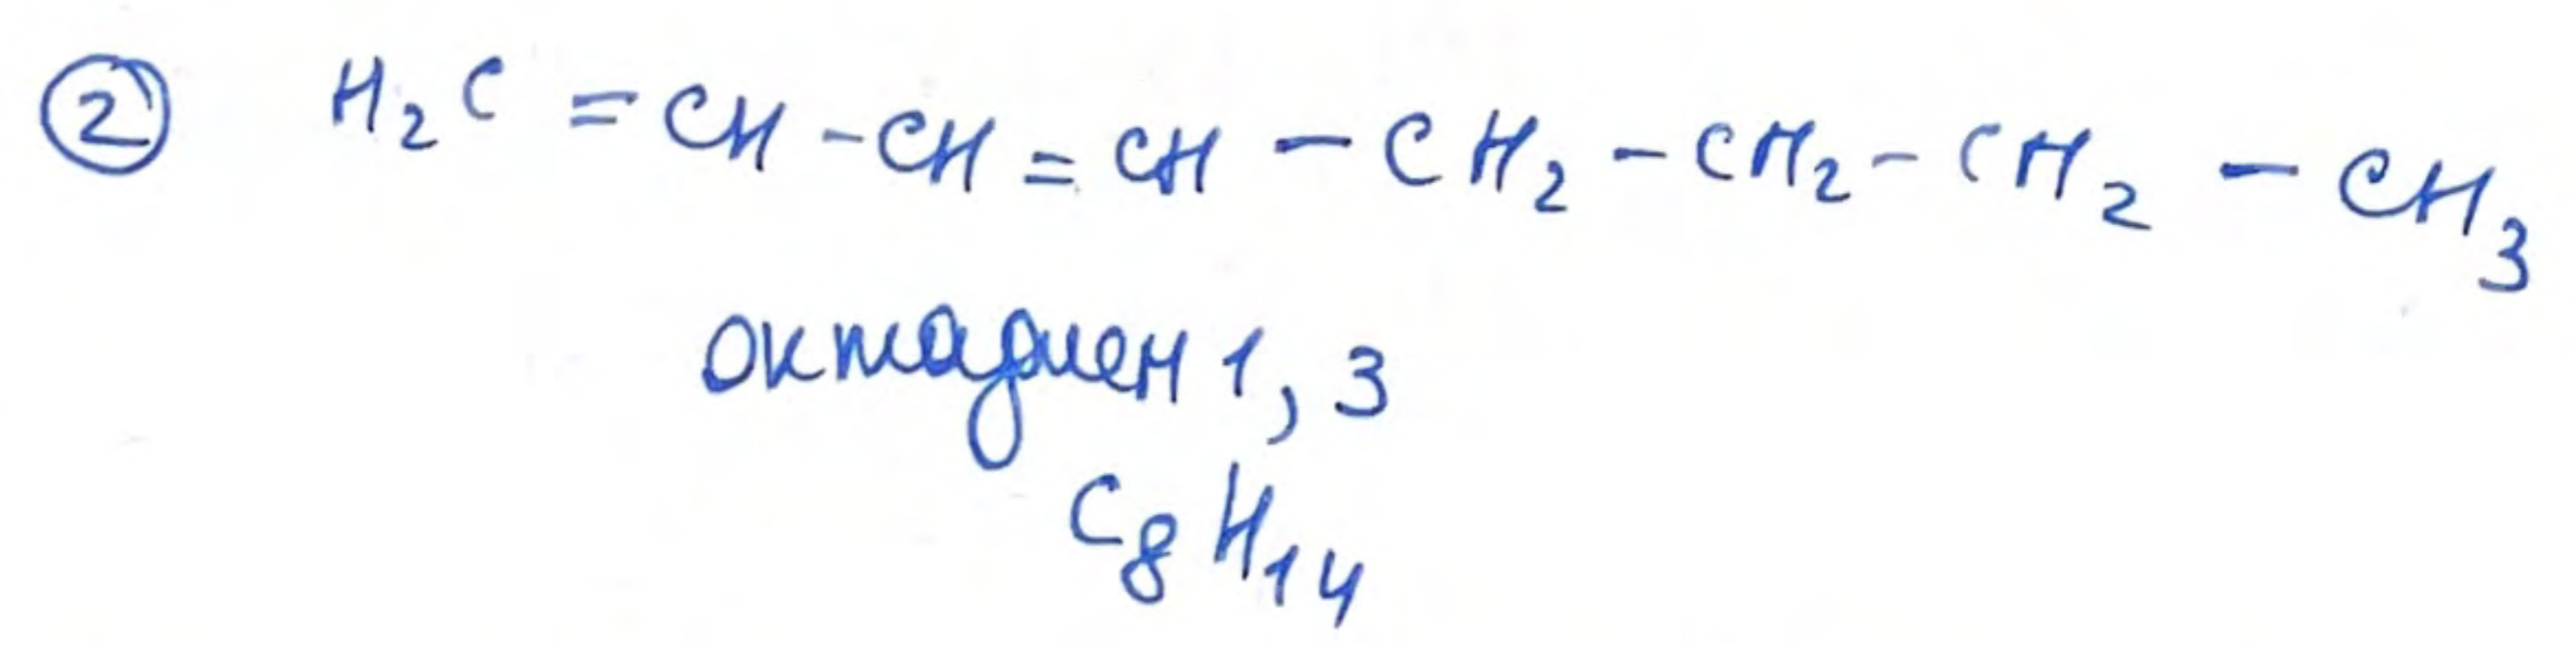 ② H₂C = CH - CH = CH - CH₂ - CH₂ - CH₂ - CH₃
октадиен 1, 3
C₈H₁₄